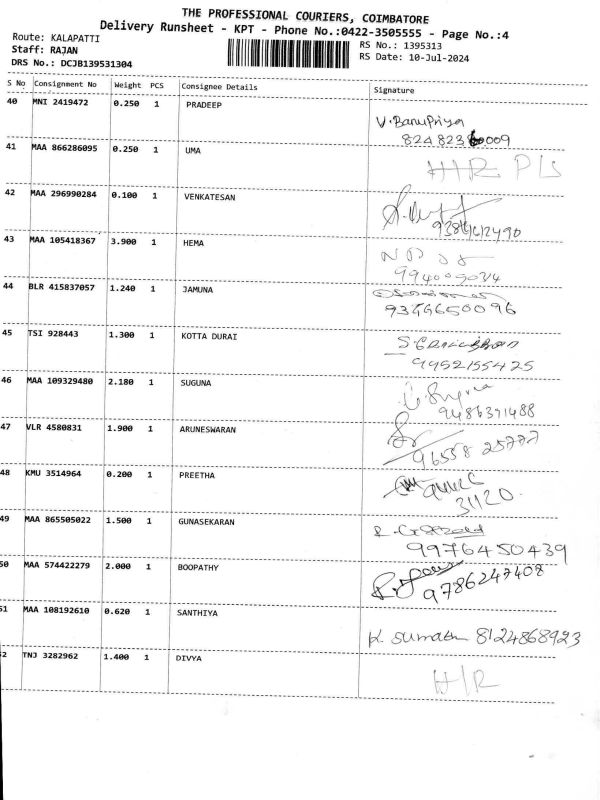 THE PROFESSIONAL COURIERS, COIMBATORE
Delivery Runsheet - KPT - Phone No.:0422-3505555 - Page No.:4
Route: KALAPATTI RS No.: 1395313
Staff: RAJAN RS Date: 10-Jul-2024
DRS No.: DCJB139531304
S No Consignment No Weight PCS Consignee Details Signature
40 MNI 2419472 0.250 1 PRADEEP
V. BanuPriya
41 MAA 866286095 0.250 1 UMA
H/R
42 MAA 296990284 0.100 1 VENKATESAN
43 MAA 105418367 3.900 1 HEMA
44 BLR 415837057 1.240 1 JAMUNA
9344650096
45 TSI 928443 1.300 1 KOTTA DURAI
9952155425
46 MAA 109329480 2.180 1 SUGUNA
9486371488
47 VLR 4580831 1.900 1 ARUNESWARAN
96558 25777
48 KMU 3514964 0.200 1 PREETHA
31120
49 MAA 865505022 1.500 1 GUNASEKARAN
9976450439
50 MAA 574422279 2.000 1 BOOPATHY
9786247408
51 MAA 108192610 0.620 1 SANTHIYA
K. Sumathi 8124868923
52 TNJ 3282962 1.400 1 DIVYA
H/R